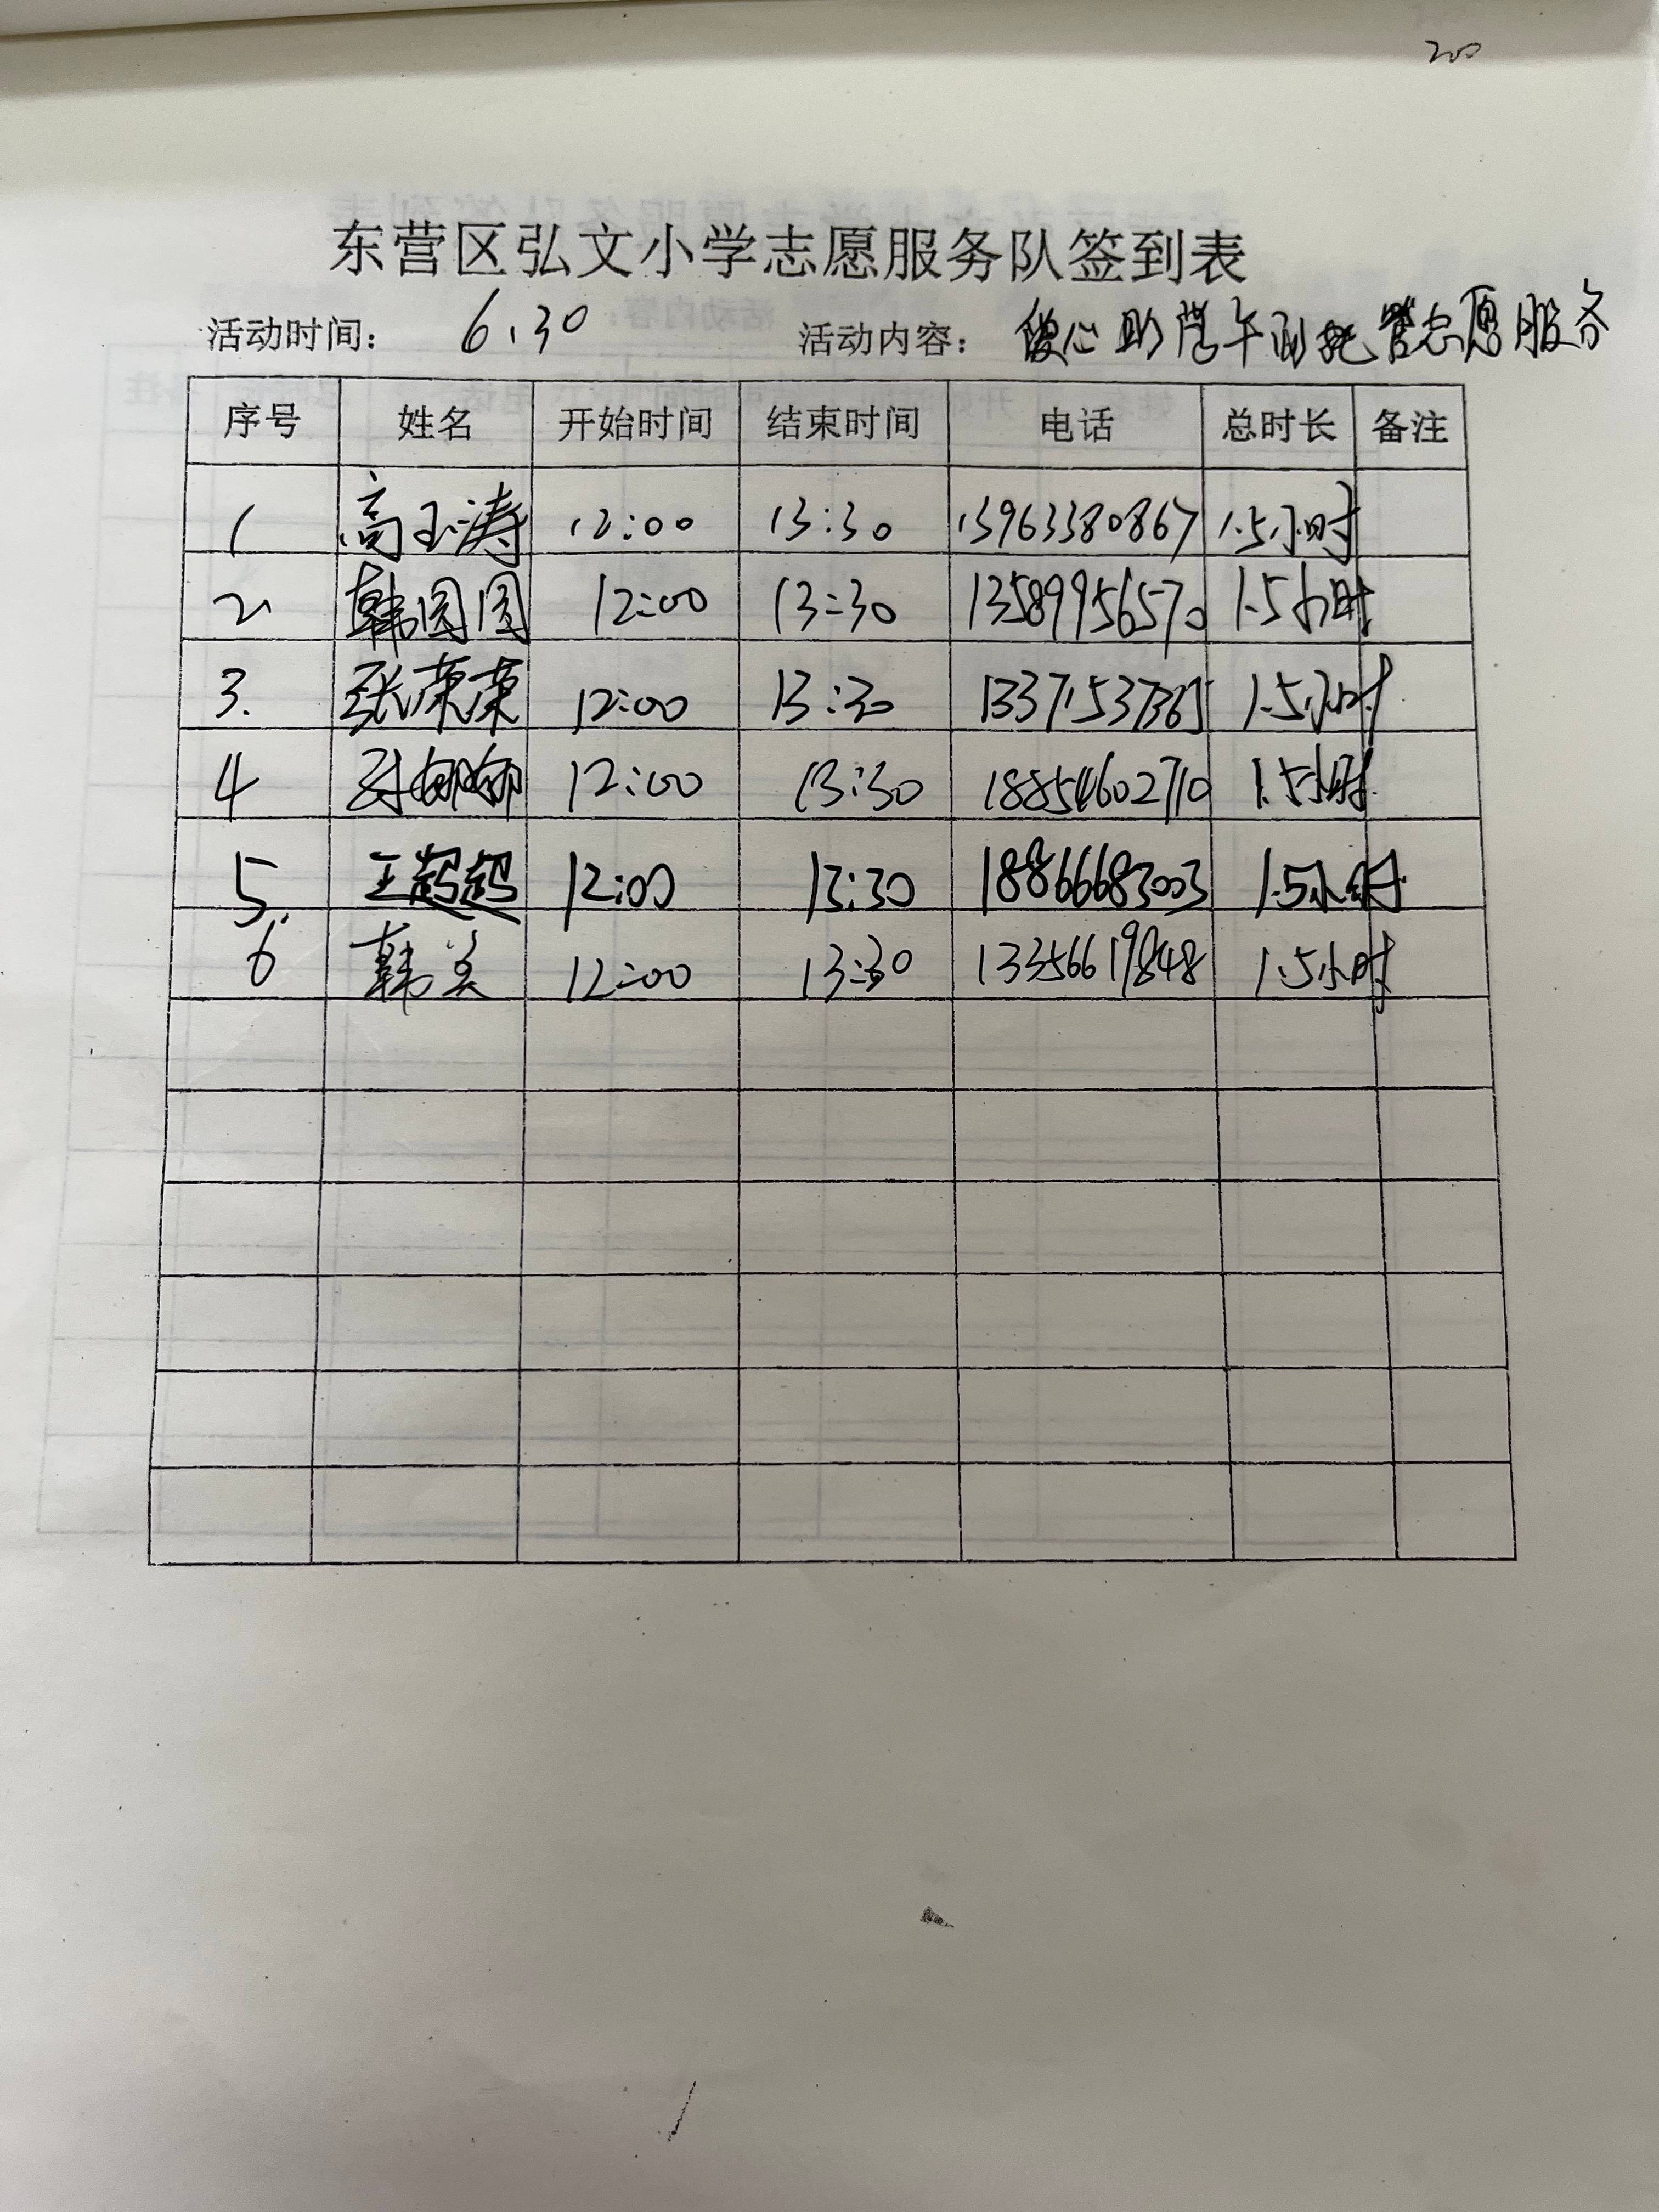 200
东营区弘文小学志愿服务队签到表
活动时间： 6.30 活动内容： 助学午间托管志愿服务
序号 姓名 开始时间 结束时间 电话 总时长 备注
1 高玉涛 12:00 13:30 13963380867 1.5小时
2 韩圆圆 12:00 13:30 13589956570 1.5小时
3. 张荣荣 12:00 13:30 13371537365 1.5小时
4 12:00 13:30 18854602710 1.5小时
5. 王超超 12:00 13:30 18866683003 1.5小时
6 韩美 12:00 13:30 13356619848 1.5小时